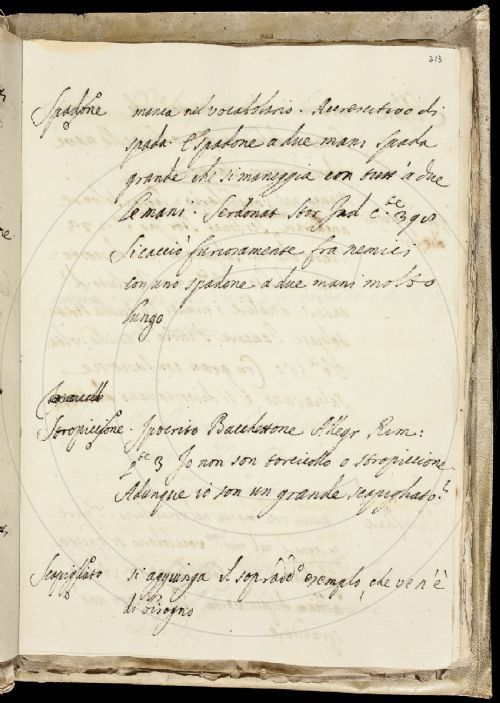 213
Spadone manca nel vocabolario. Accrescitivo di
spada. E Spadone a due mani spada
grande che si maneggia con tutt'a due
le mani. Serdonat Stor Ind c.te 398
Si cacciò furiosamente fra nemici
con uno spadone a due mani molto
lungo
Stropiccione. Ipocrito Bacchettone Allegr Rim:
p.te 3 Io non son torcicollo o stropiccione
Adunque io son un grande scapigliato
Scapigliato si aggiunga il sopradd.o esempio, che ve n'è
di bisogno